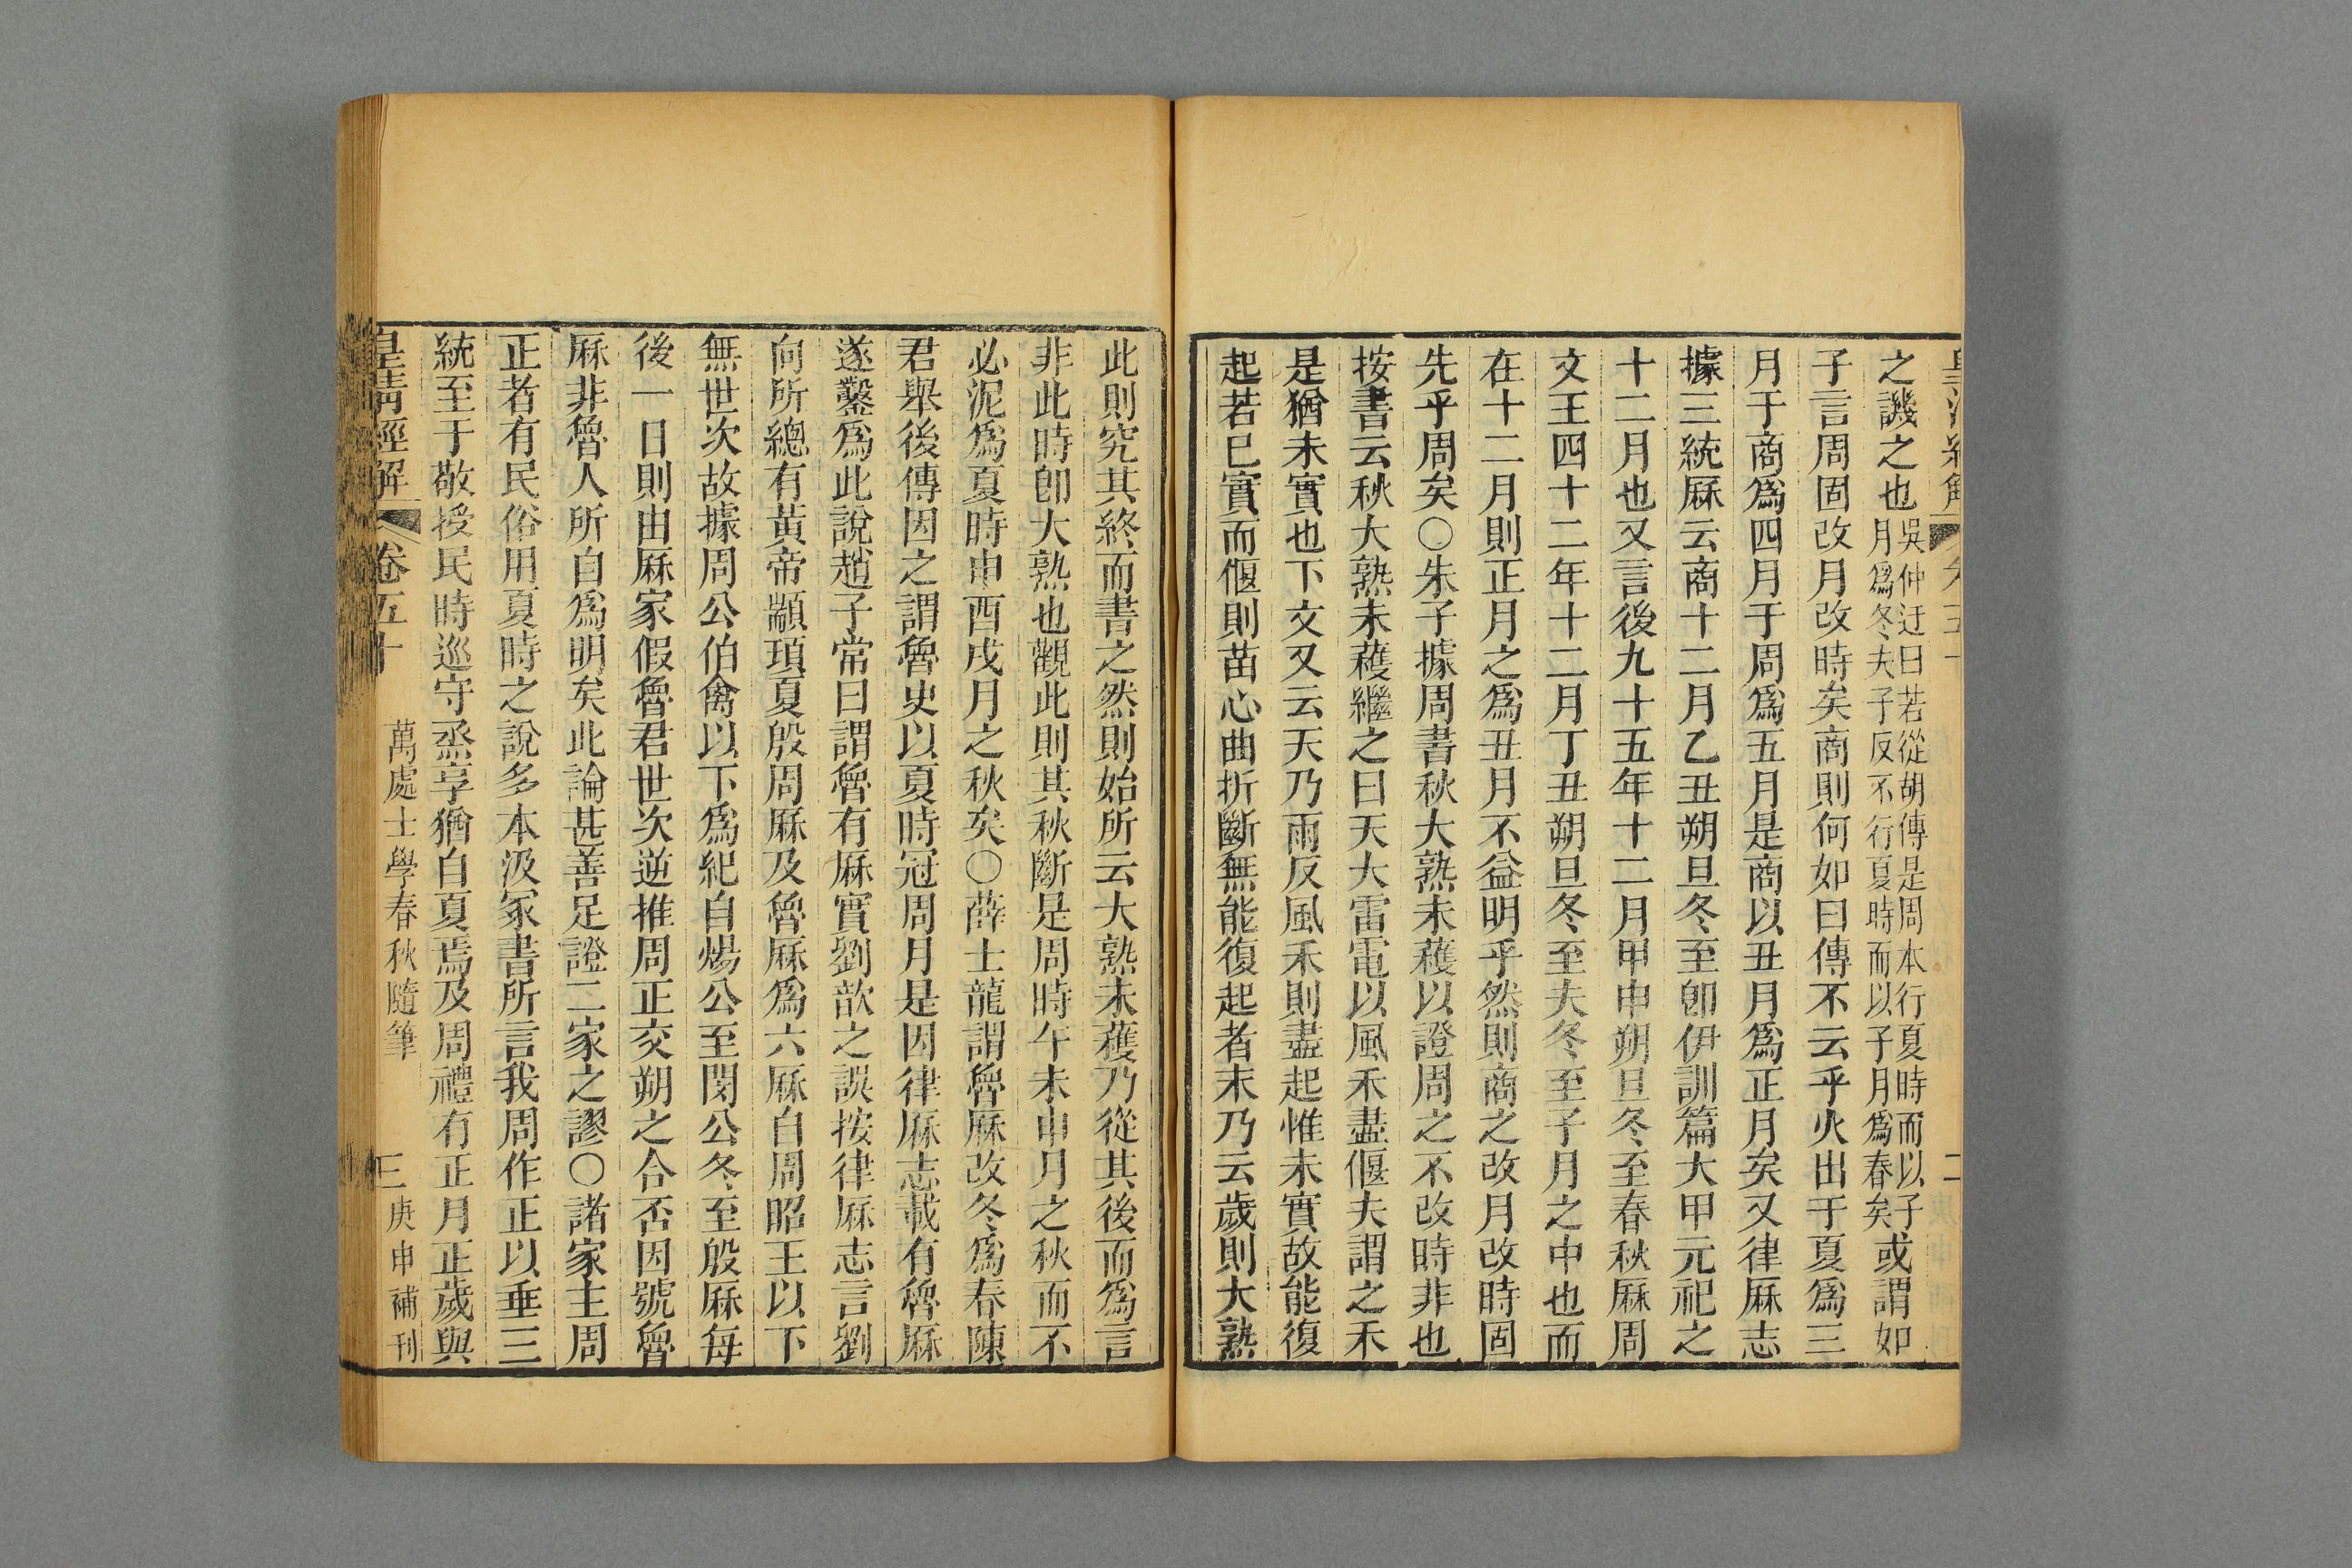 之譏之也吳仲迂曰若從胡傳是周本行夏時而以子
月爲冬夫子反不行夏時而以子月爲春矣或謂如
子言周固改月改時矣商則何如曰傳不云乎火出于夏爲三
月于商爲四月于周爲五月是商以丑月爲正月矣又律厤志
據三統厤云商十二月乙丑朔旦冬至卽伊訓篇大甲元祀之
十二月也又言後九十五年十二月甲申朔旦冬至春秋厤周
文王四十二年十二月丁丑朔旦冬至夫冬至子月之中也而
在十二月則正月之爲丑月不益明乎然則商之改月改時固
先乎周矣〇朱子據周書秋大熟未穫以證周之不改時非也
按書云秋大熟未穫繼之曰天大雷電以風禾盡偃夫謂之禾
是猶未實也下文又云天乃雨反風禾則盡起惟未實故能復
起若已實而偃則苗心曲折斷無能復起者末乃云歲則大熟
此則究其終而書之然則始所云大熟未穫乃從其後而爲言
非此時卽大熟也觀此則其秋斷是周時午未申月之秋而不
必泥爲夏時申酉戌月之秋矣〇薛士龍謂魯厤改冬爲春陳
君舉後傳因之謂魯史以夏時冠周月是因律厤志載有魯厤
遂鑿爲此說趙子常曰謂魯有厤實劉歆之誤按律厤志言劉
向所總有黃帝顓頊夏殷周厤及魯厤爲六厤自周昭王以下
無世次故據周公伯禽以下爲紀自煬公至閔公冬至殷厤每
後一日則由厤家假魯君世次逆推周正交朔之合否因號魯
厤非魯人所自爲明矣此論甚善足證二家之謬〇諸家主周
正者有民俗用夏時之說多本汲冢書所言我周作正以垂三
統至于敬授民時巡守烝享猶自夏焉及周禮有正月正歲與
皇淸經解 卷五十 萬處士學春秋隨筆 三 庚申補刊